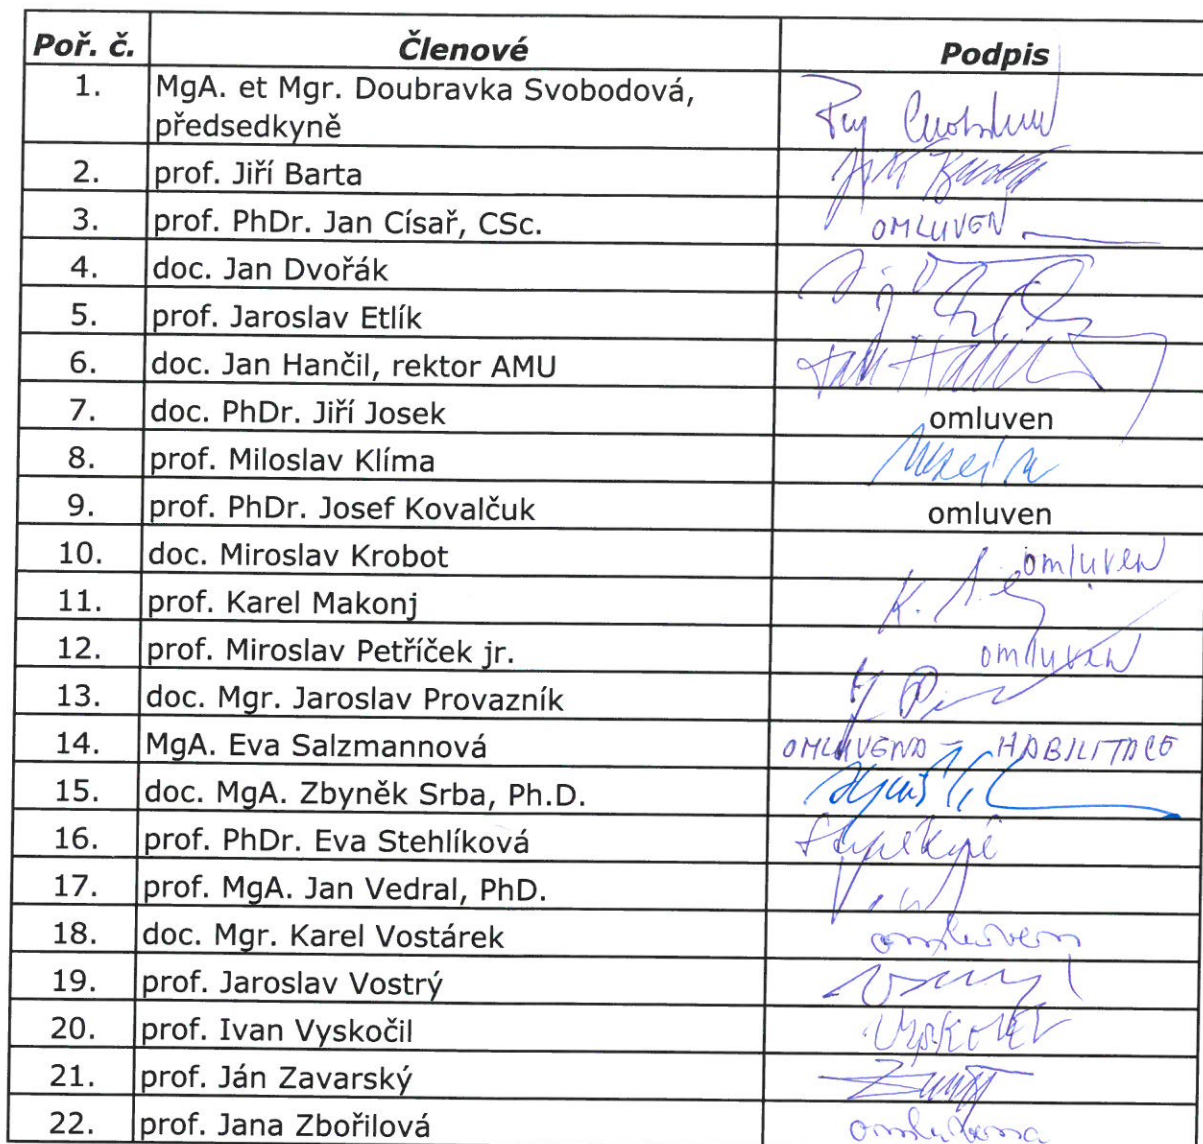 Poř. č. Členové Podpis
1. MgA. et Mgr. Doubravka Svobodová,
předsedkyně
2. prof. Jiří Barta
3. prof. PhDr. Jan Císař, CSc. OMLUVEN
4. doc. Jan Dvořák
5. prof. Jaroslav Etlík
6. doc. Jan Hančil, rektor AMU
7. doc. PhDr. Jiří Josek omluven
8. prof. Miloslav Klíma
9. prof. PhDr. Josef Kovalčuk omluven
10. doc. Miroslav Krobot omluven
11. prof. Karel Makonj
12. prof. Miroslav Petříček jr. omluven
13. doc. Mgr. Jaroslav Provazník
14. MgA. Eva Salzmannová OMLUVENA - HABILITACE
15. doc. MgA. Zbyněk Srba, Ph.D.
16. prof. PhDr. Eva Stehlíková
17. prof. MgA. Jan Vedral, PhD.
18. doc. Mgr. Karel Vostárek omluven
19. prof. Jaroslav Vostrý
20. prof. Ivan Vyskočil
21. prof. Ján Zavarský
22. prof. Jana Zbořilová omluvena